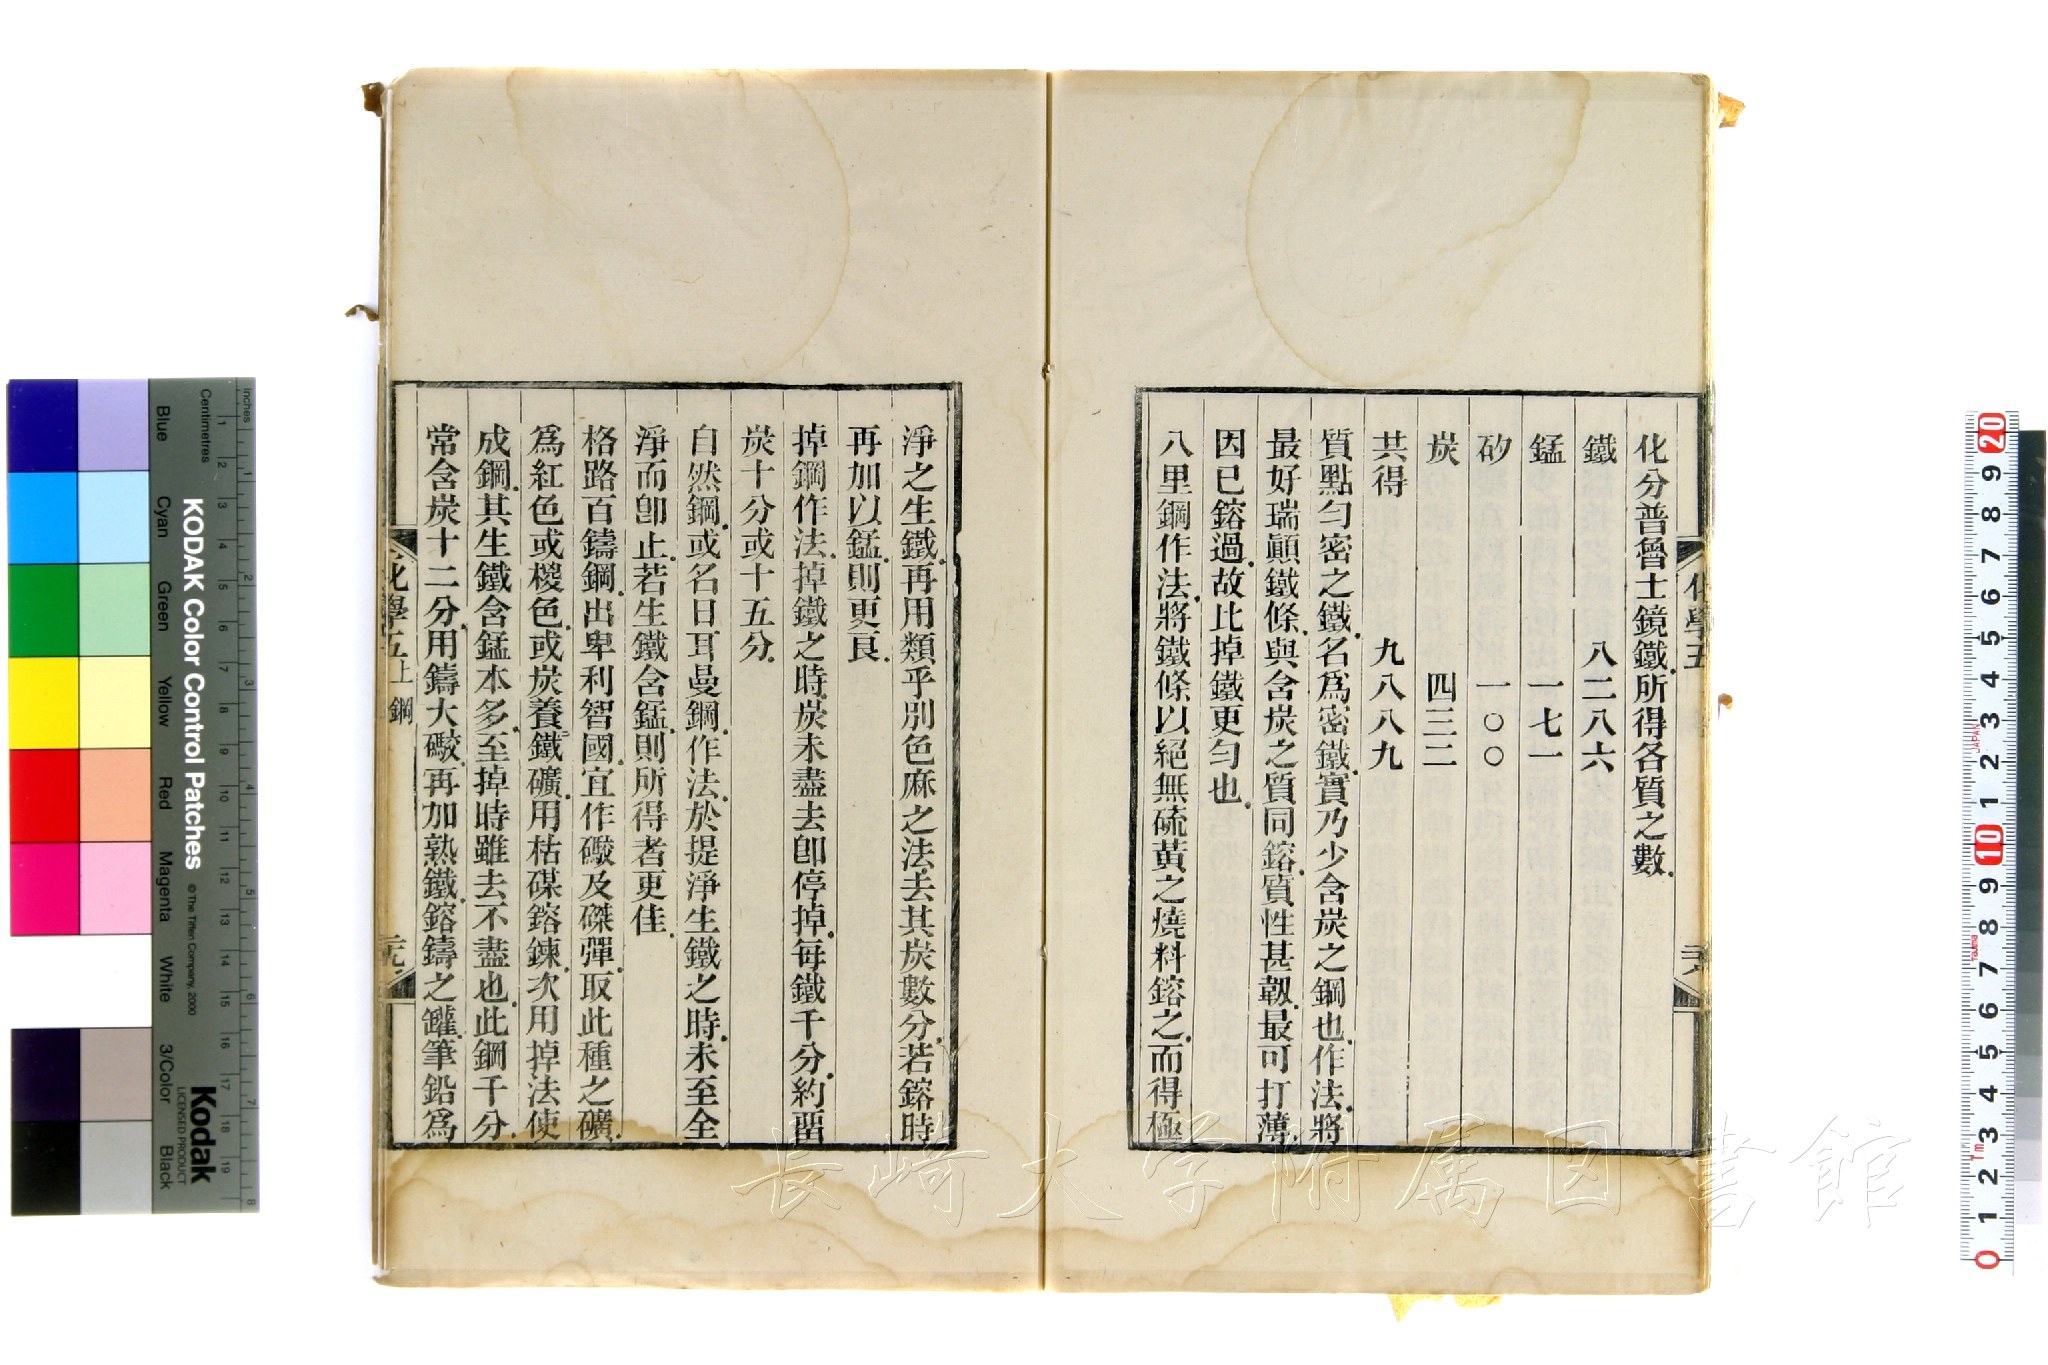 化分普魯士鏡鐵所得各質之數
鐵 八二八六
錳 一七一
矽 一〇〇
炭 四三二
共得 九八八九
質點勻密之鐵名爲密鐵實乃少含炭之鋼也作法將
最好瑞顚鐵條與含炭之質同鎔質性甚韌最可打薄
因已鎔過故比掉鐵更勻也
八里鋼作法將鐵條以絕無硫黃之燒料鎔之而得極
淨之生鐵再用類乎別色麻之法去其炭數分若鎔時
再加以錳則更良
掉鋼作法掉鐵之時炭未盡去卽停掉每鐵千分約畱
炭十分或十五分
自然鋼或名日耳曼鋼作法於提淨生鐵之時未至全
淨而卽止若生鐵含錳則所得者更佳
格路百鑄鋼出卑利智國宜作礮及磔彈取此種之礦
爲紅色或椶色或炭養鐵礦用枯煤鎔鍊次用掉法使
成鋼其生鐵含錳本多至掉時雖去不盡也此鋼千分
常含炭十二分用鑄大礮再加熟鐵鎔鑄之罐筆鉛爲
化學五
化學五上 鋼
二十九
長崎大学附属図書館
KODAK Color Control Patches
© The Tiffen Company, 2000
Kodak
LICENSED PRODUCT
Inches
Centimetres
Blue
Cyan
Green
Yellow
Red
Magenta
White
3/Color
Black
1 2 3 4 5 6 7 8 9 10 11 12 13 14 15 16 17 18 19
1 2 3 4 5 6 7 8
20 9 8 7 6 5 4 3 2 1 10 9 8 7 6 5 4 3 2 1 0
JAPAN
Tajima
1m